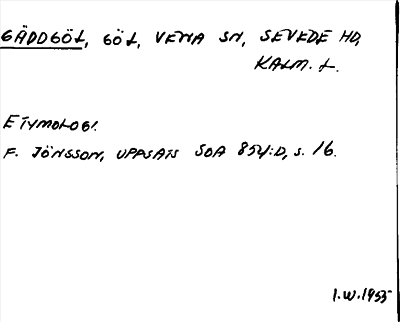 GÄDDGÖL, GÖL, VENA SN, SEVEDE HD,
KALM. L.
ETYMOLOGI.
F. JÖNSSON, UPPSATS SOA 854:D, s. 16.
I.W.1955